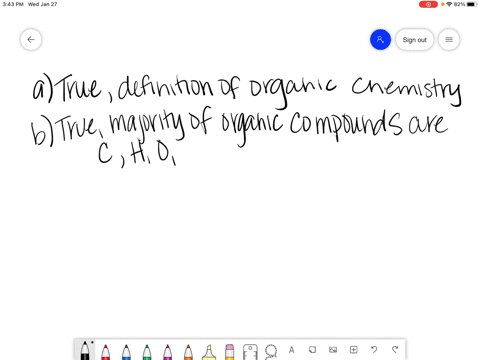 3:43 PM Wed Jan 27
82%
Sign out
a) True, definition of organic chemistry
b) True, majority of organic compounds are
C, H, O,
A